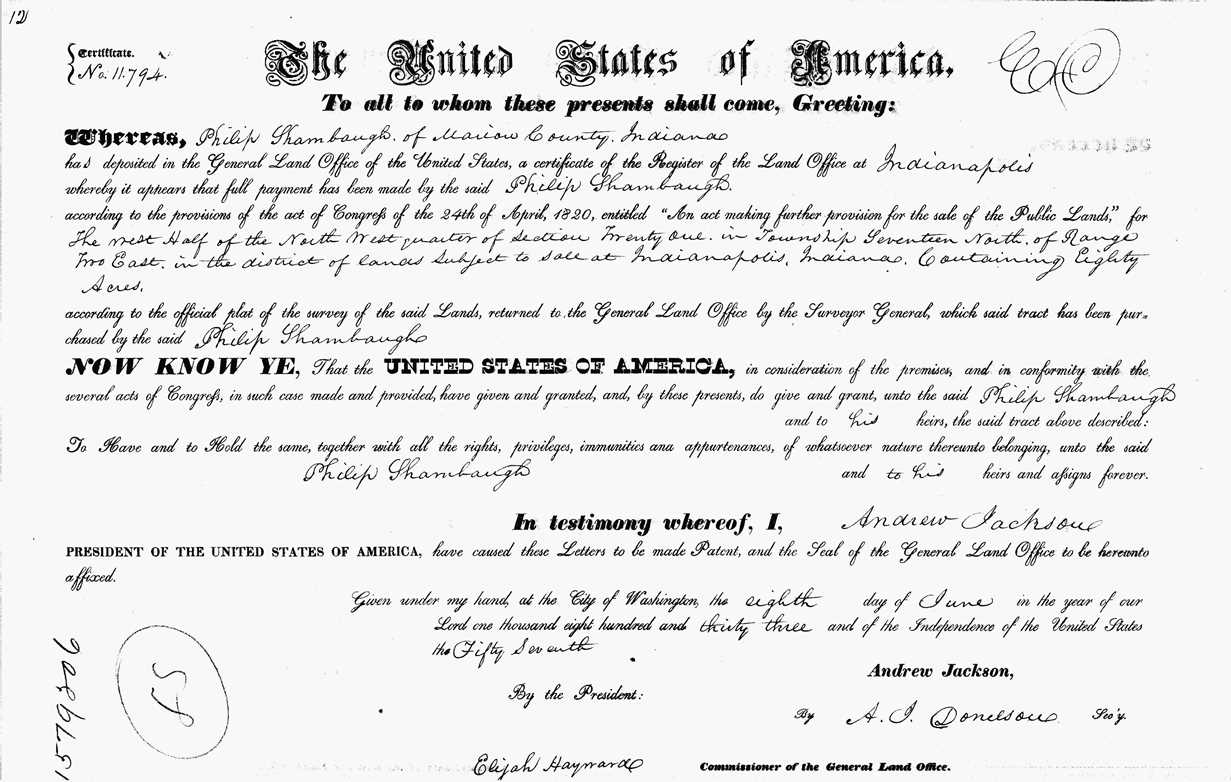 12
Certificate.
No. 11.794.
The United States of America.
To all to whom these presents shall come, Greeting:
Whereas, Philip Shambaugh. of Marion County. Indiana
has deposited in the General Land Office of the United States, a certificate of the Register of the Land Office at Indianapolis
whereby it appears that full payment has been made by the said Philip Shambaugh.
according to the provisions of the act of Congress of the 24th of April, 1820, entitled "An act making further provision for the sale of the Public Lands," for
The West Half of the North West quarter of Section Twenty One. in Township Seventeen North. of Range
Two East. in the district of lands Subject to sale at Indianapolis. Indiana. Containing Eighty
Acres.
according to the official plat of the survey of the said Lands, returned to the General Land Office by the Surveyor General, which said tract has been pur-
chased by the said Philip Shambaugh
NOW KNOW YE, That the UNITED STATES OF AMERICA, in consideration of the premises, and in conformity with the
several acts of Congress, in such case made and provided, have given and granted, and, by these presents, do give and grant, unto the said Philip Shambaugh
and to his heirs, the said tract above described:
To Have and to Hold the same, together with all the rights, privileges, immunities and appurtenances, of whatsoever nature thereunto belonging, unto the said
Philip Shambaugh and to his heirs and assigns forever.
In testimony whereof, I, Andrew Jackson
PRESIDENT OF THE UNITED STATES OF AMERICA, have caused these Letters to be made Patent, and the Seal of the General Land Office to be hereunto
affixed.
Given under my hand, at the City of Washington, the eighth day of June in the year of our
Lord one thousand eight hundred and thirty three and of the Independence of the United States
the Fifty Seventh
Andrew Jackson,
By the President:
By A. J. Donelson Sec'y.
Elijah Hayward Commissioner of the General Land Office.